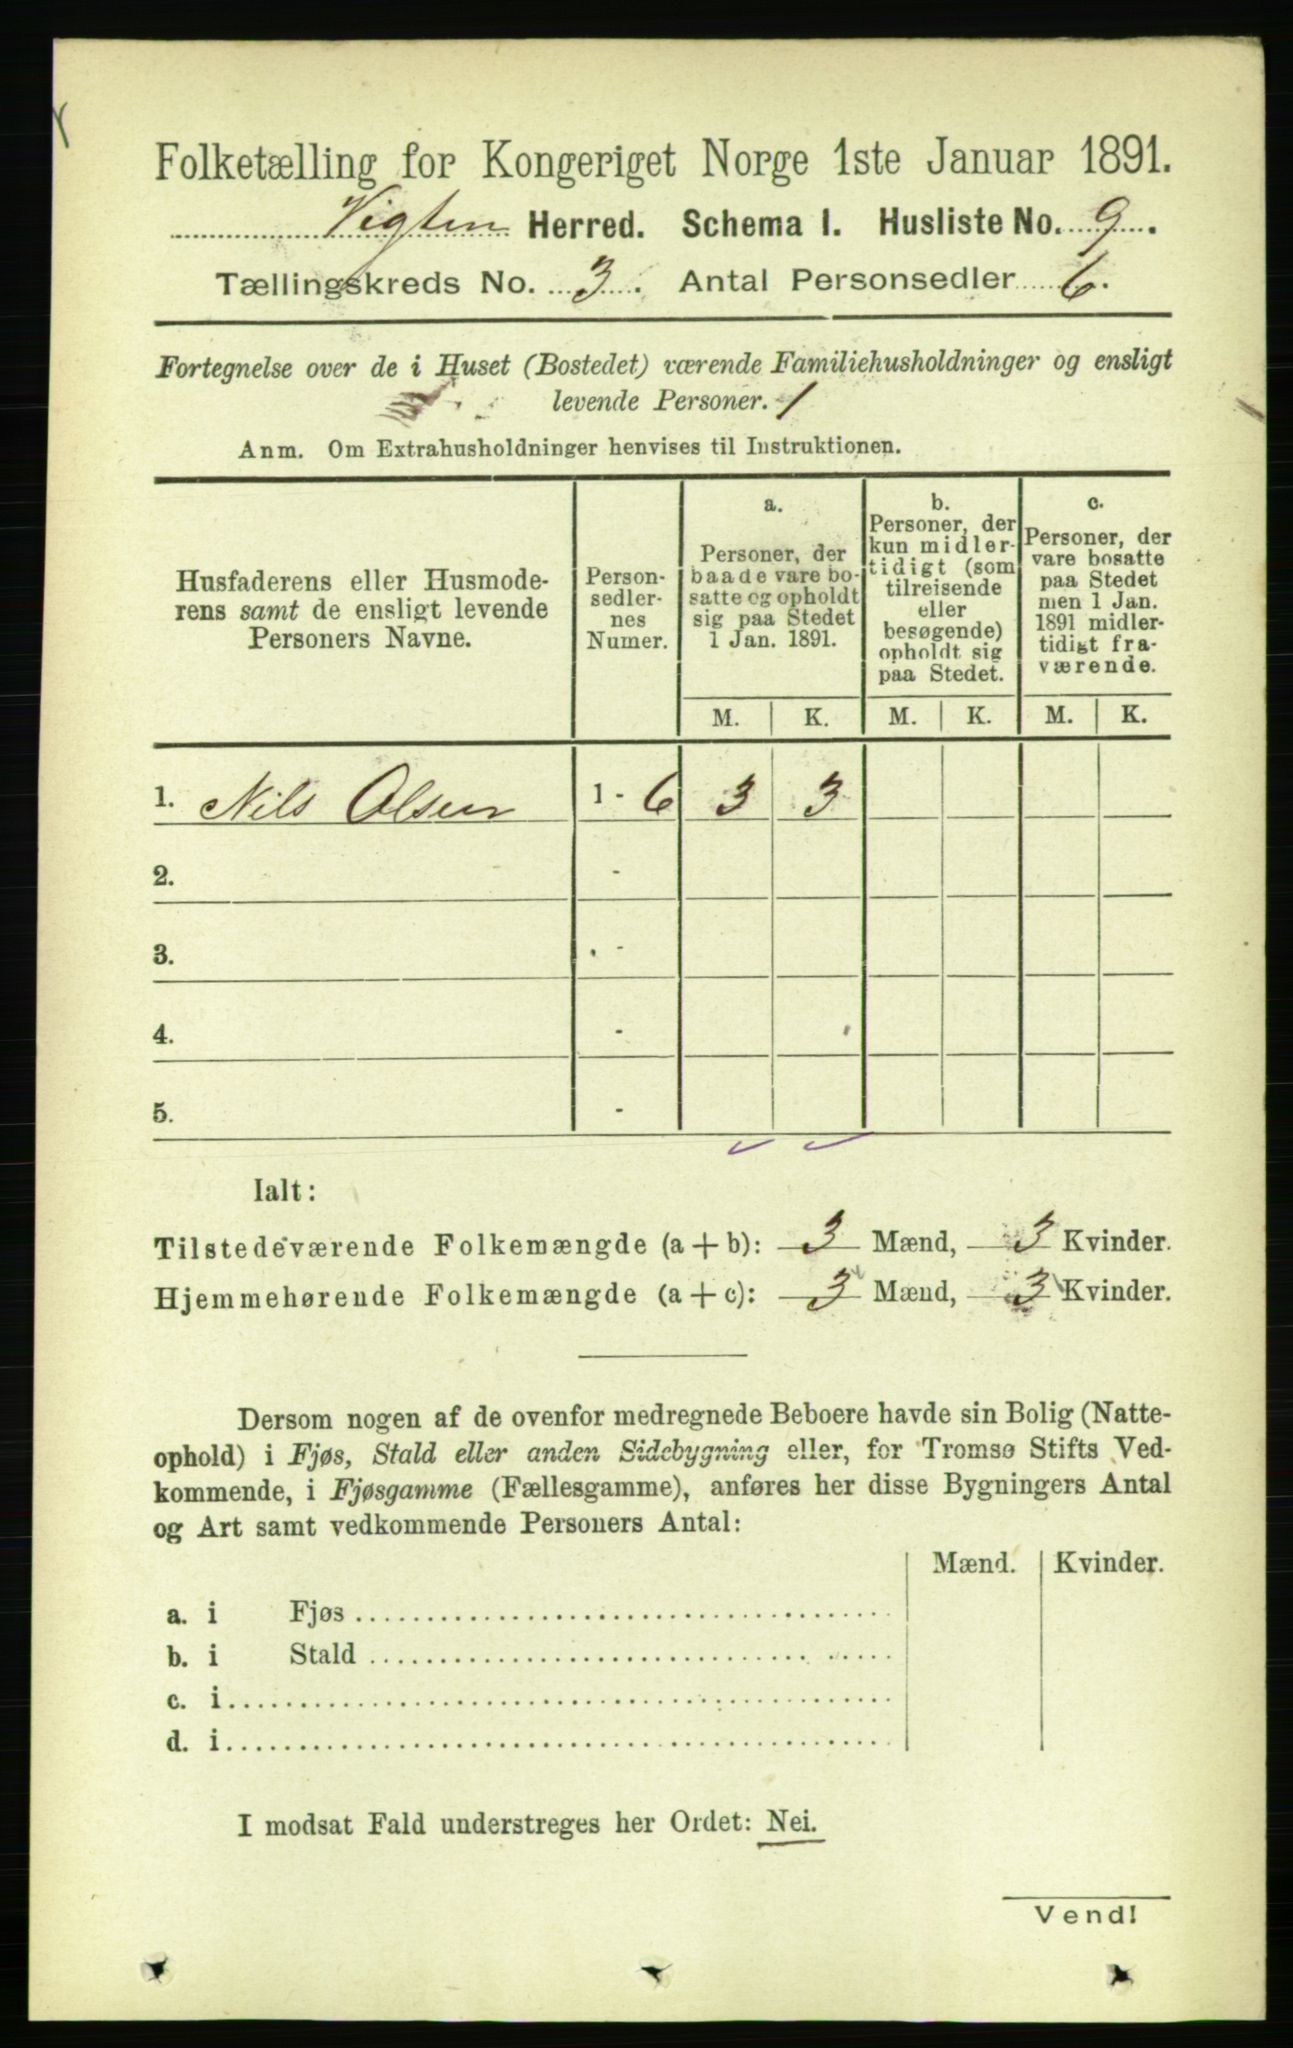 Folketælling for Kongeriget Norge 1ste Januar 1891.
Vigten Herred. Schema I. Husliste No. 9.
Tællingskreds No. 3. Antal Personsedler 6.
Fortegnelse over de i Huset (Bostedet) værende Familiehusholdninger og ensligt
levende Personer. 1
Anm. Om Extrahusholdninger henvises til Instruktionen.
Husfaderens eller Husmode-
rens samt de ensligt levende
Personers Navne.
Person-
sedler-
nes
Numer.
a.
Personer, der
baade vare bo-
satte og opholdt
sig paa Stedet
1 Jan. 1891.
b.
Personer, der
kun midler-
tidigt (som
tilreisende
eller
besøgende)
opholdt sig
paa Stedet.
c.
Personer, der
vare bosatte
paa Stedet
men 1 Jan.
1891 midler-
tidigt fra-
værende.
M. K. M. K. M. K.
1. Nils Olsen 1 - 6 3 3
2. -
3. -
4. -
5. -
Ialt:
Tilstedeværende Folkemængde (a + b): 3 Mænd, 3 Kvinder.
Hjemmehørende Folkemængde (a + c): 3 Mænd, 3 Kvinder.
Dersom nogen af de ovenfor medregnede Beboere havde sin Bolig (Natte-
ophold) i Fjøs, Stald eller anden Sidebygning eller, for Tromsø Stifts Ved-
kommende, i Fjøsgamme (Fællesgamme), anføres her disse Bygningers Antal
og Art samt vedkommende Personers Antal:
Mænd. Kvinder.
a. i Fjøs
b. i Stald
c. i
d. i
I modsat Fald understreges her Ordet: Nei.
Vend!